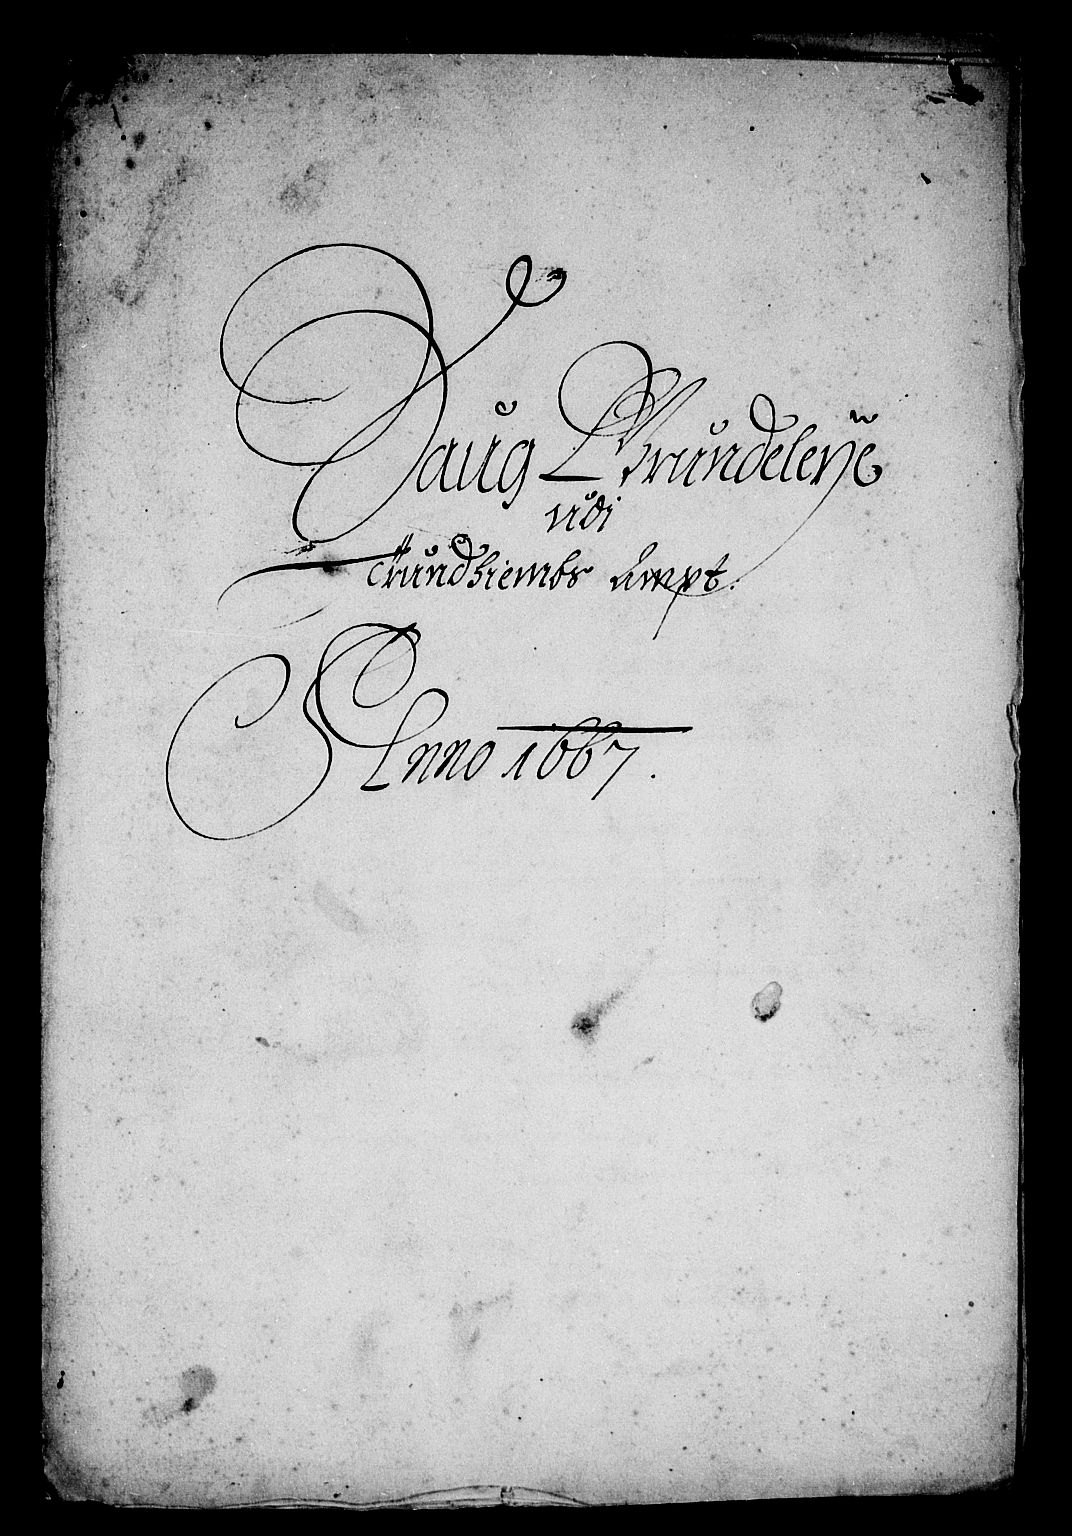 Saug Grundeleye
udi
Trundhiembs Ampt.
Anno 1667.